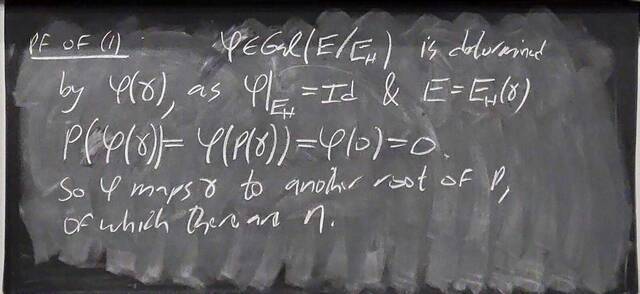 PF OF (1) φ∈Gal(E/E_H) is determined
by φ(γ), as φ|_{E_H} = Id & E = E_H(γ)
P(φ(γ)) = φ(P(γ)) = φ(0) = 0.
So φ maps γ to another root of P,
of which there are n.